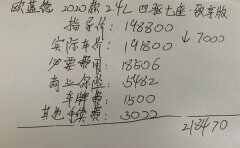 欧蓝德 2020款 2.4L 四驱七座·致享版
指导价: 198800
↓7000
实际车价: 191800
必要费用: 18506
商业保险: 5482
车牌费: 1500
其他手续费: 3022
218470